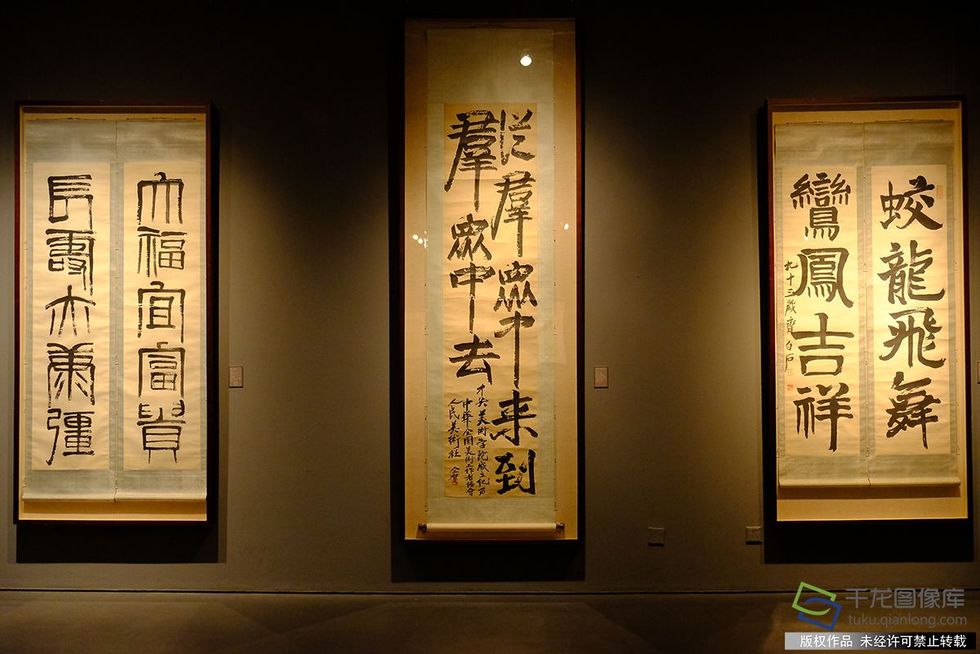 大福宜富貴
長壽亦無彊
從羣眾中來到
羣眾中去
中央美術学院成立紀念
中華全國美術工作者協會
人民美術社 仝賀
蛟龍飛舞
鸞鳳吉祥
九十三歲齊白石
千龙图像库
tuku.qianlong.com
版权作品 未经许可禁止转载